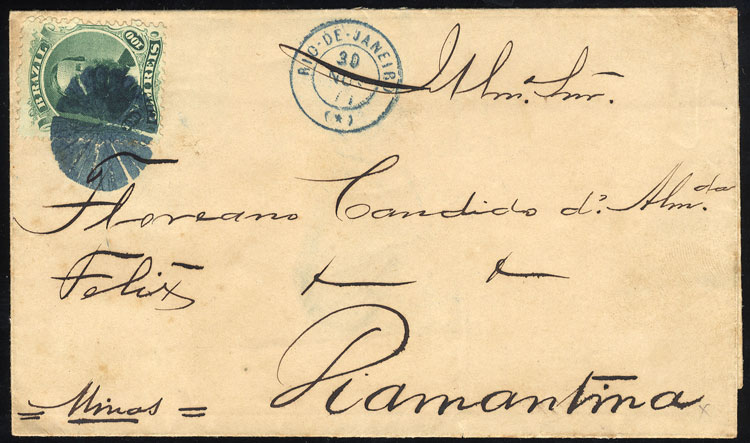 BRAZIL 100 REIS
RIO-DE-JANEIRO
30
NOV
77
(*)
Illmo. Snr.
Floreano Candido d'. Almda
Felix
= Minas =
Diamantina